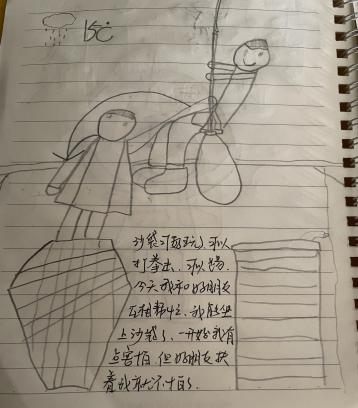 15℃
沙袋可好玩，可以
打拳击，可以荡。
今天我和好朋友
上沙袋了，一开始我有
点害怕，但好朋友扶
着我就不怕了。